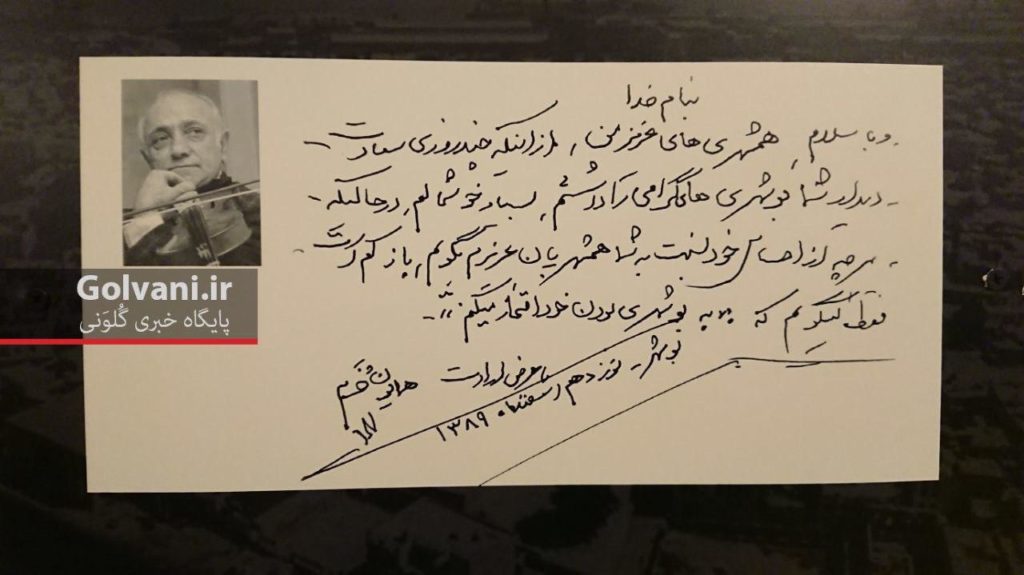 بنام خدا
و با سلام، همشهری‌های عزیز من، از اینکه چند روزی سعادت
دیدار شما بوشهری های گرامی را داشتم، بسیار خوشحالم، در حالیکه
هر چه از احساس خود نسبت به شما همشهریان عزیزم بگویم، باز کم است
فقط میگویم که به بوشهری بودن خود افتخار میکنم.
با عرض ارادت
بوشهر - نوزدهم اسفندماه ۱۳۸۹
همایون خرم
Golvani.ir
پایگاه خبری گُلوَنی